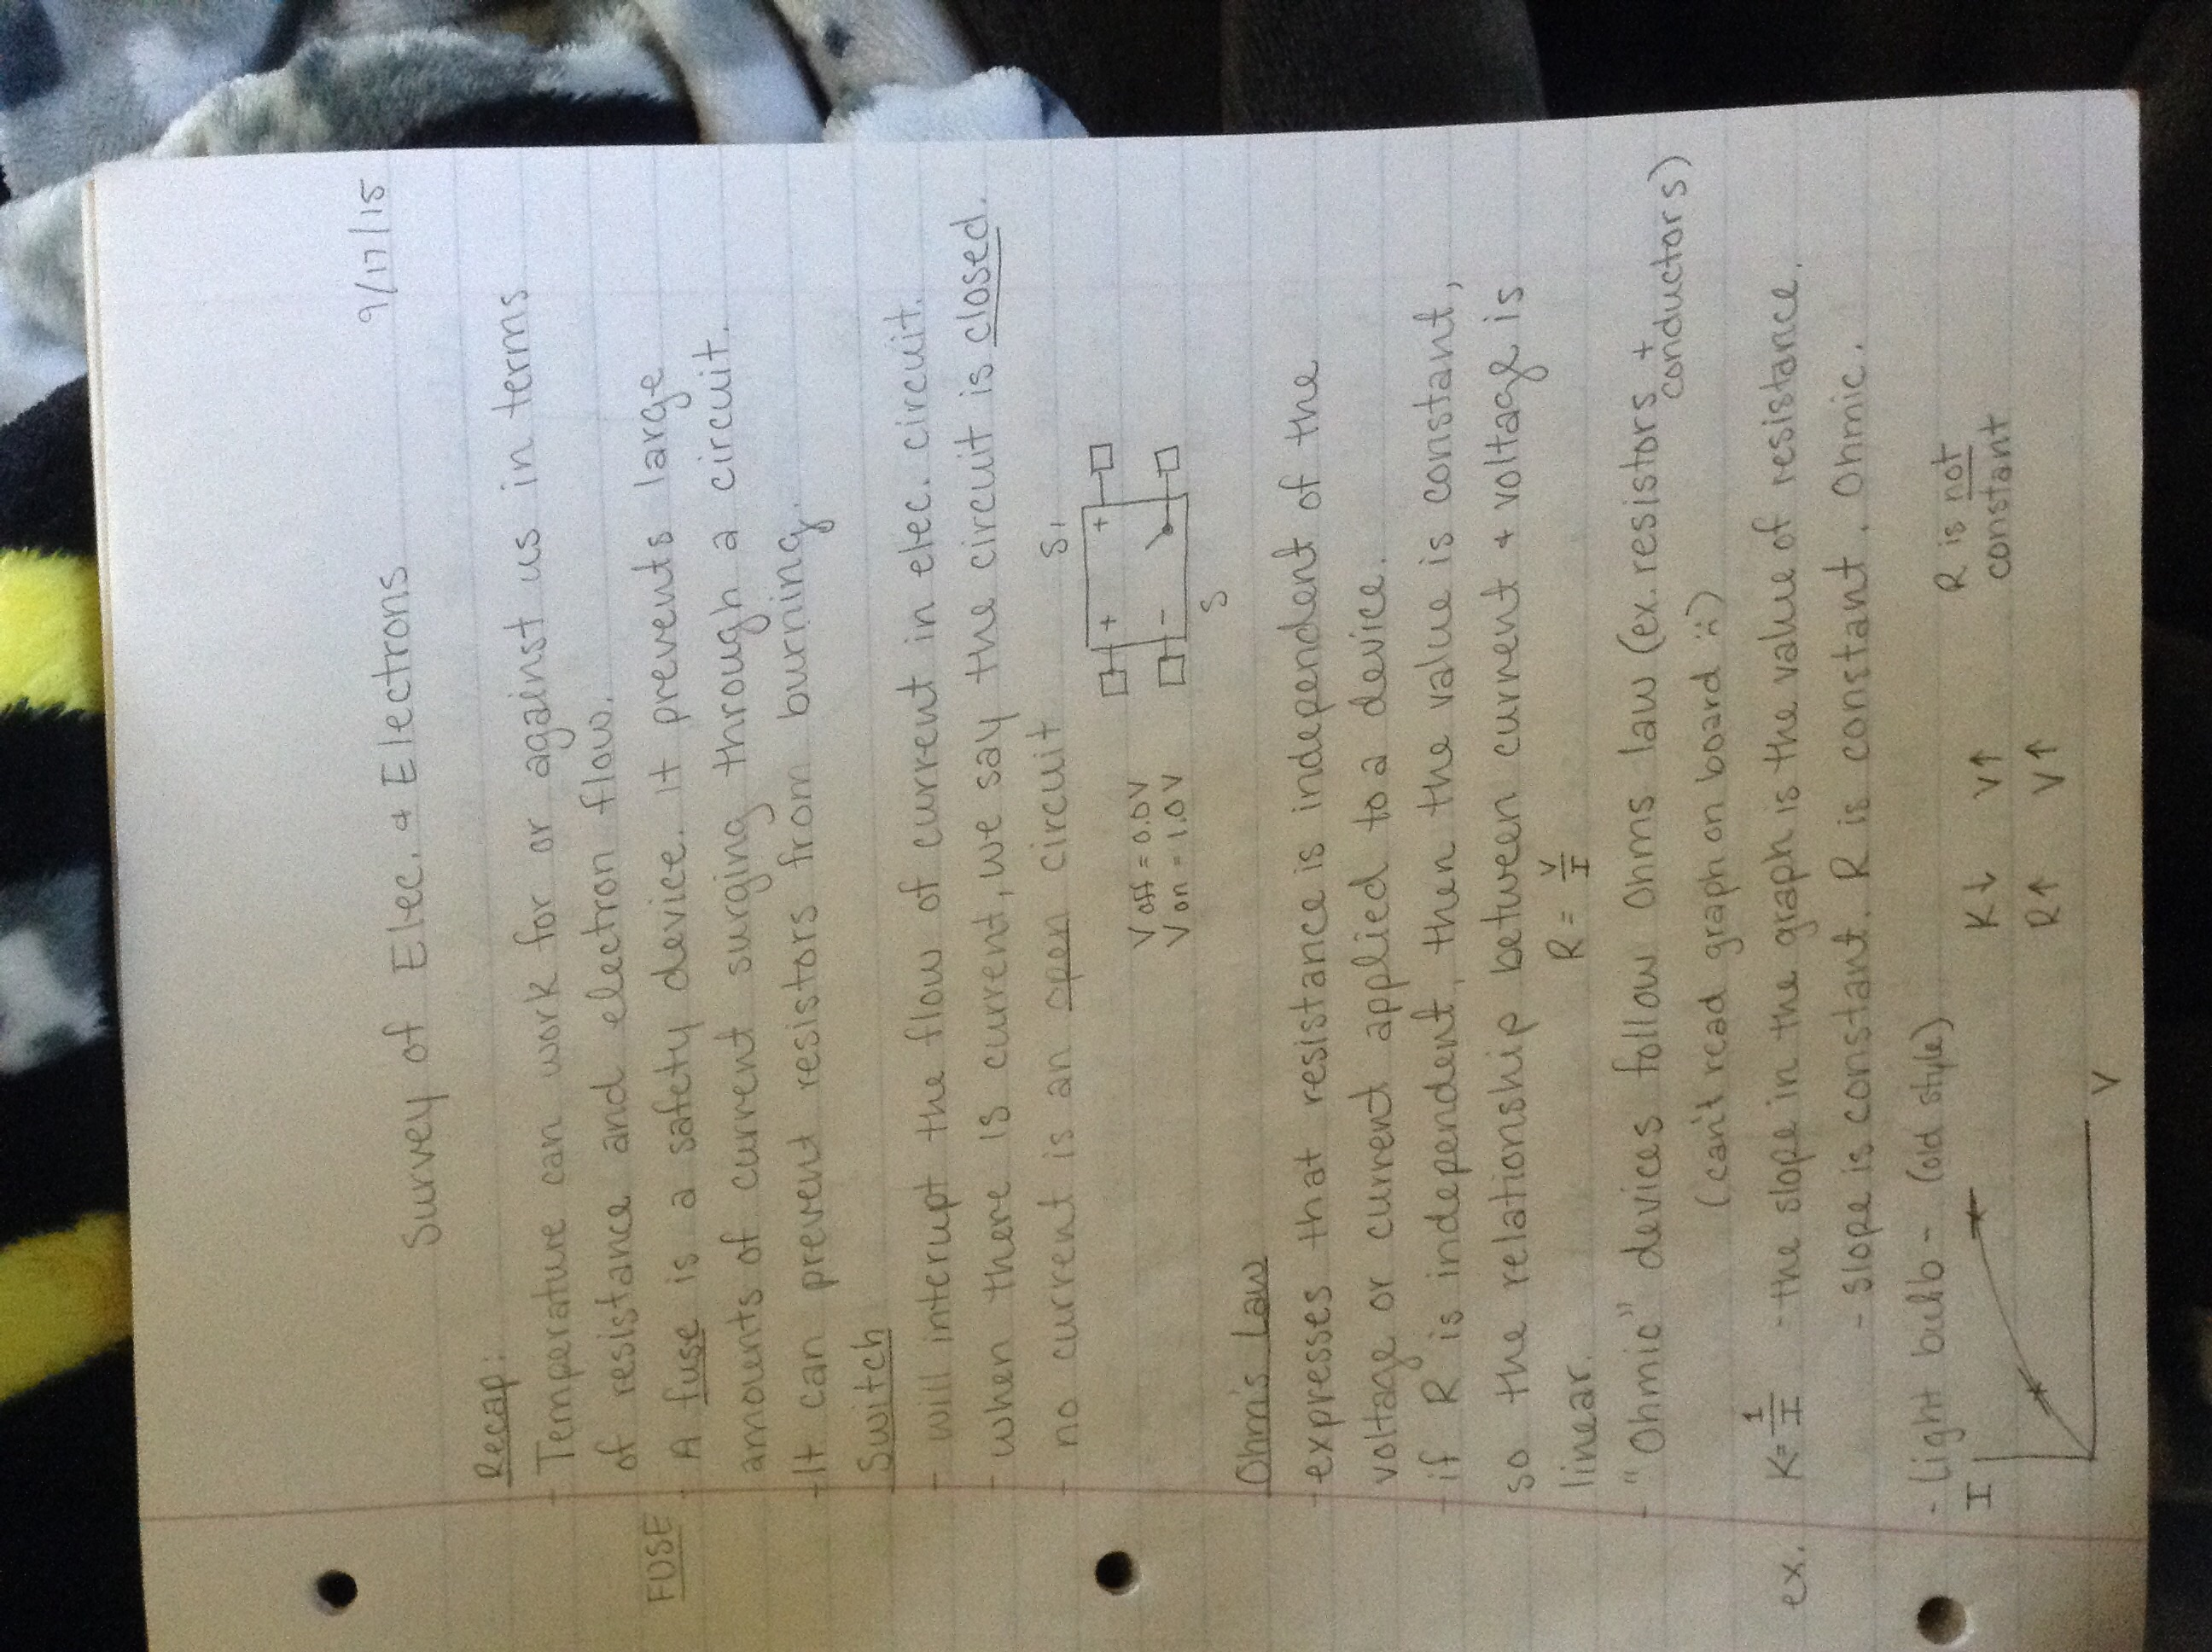 9/17/15
Survey of Elec. & Electrons
Recap:
- Temperature can work for or against us in terms
of resistance and electron flow.
FUSE - A fuse is a safety device. It prevents large
amounts of current surging through a circuit.
- It can prevent resistors from burning.
Switch
- will interrupt the flow of current in elec. circuit.
- when there is current, we say the circuit is closed.
- no current is an open circuit
S1
+ +
V off = 0.0V
V on = 1.0V
-
S
Ohm's Law
- expresses that resistance is independent of the
voltage or current applied to a device.
- if R is independent, then the value is constant,
so the relationship between current & voltage is
linear. R = V/I
- "Ohmic" devices follow Ohms law (ex. resistors +
conductors)
(can't read graph on board :()
ex. K = 1/I - the slope in the graph is the value of resistance.
- slope is constant. R is constant. Ohmic.
- Light bulb - (old style)
R is not
constant
K↓ V↑
R↑ V↑
I
V